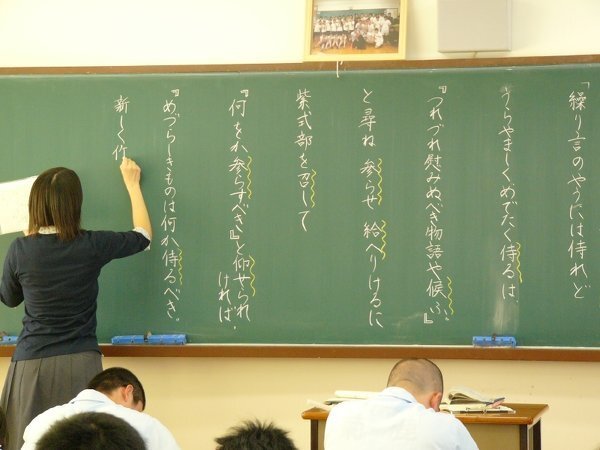 「繰り言のやうには侍れど
うらやましくめでたく侍るは、
『つれづれ慰みぬべき物語や候ふ。』
と尋ね参らせ給へりけるに
紫式部を召して
『何をか参らすべき』と仰せられ
ければ、
『めづらしきものは何か侍るべき。
新しく作